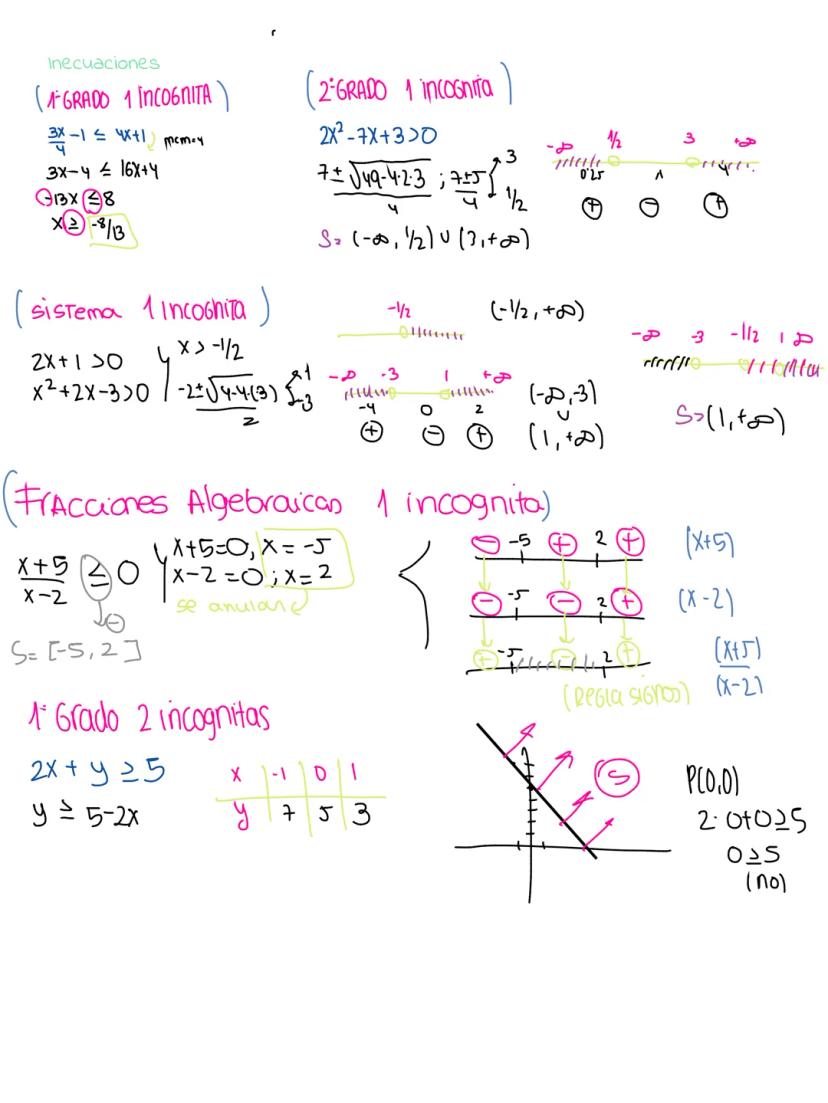 Inecuaciones
(1ºGRADO 1 INCOGNITA)
3x/4 -1 ≤ 4x+1 mcm=4
3x-4 ≤ 16x+4
-13x ≤ 8
x ≥ -8/13
(2ºGRADO 1 incognita)
2x²-7x+3>0
7±√49-4·2·3 / 4 ; 7±5/4 3 1/2
S= (-∞, 1/2) ∪ (3,+∞)
-∞ 1/2 3 +∞
0'25 1 4
+ - +
(sistema 1 incognita)
2x+1>0
x²+2x-3>0
x > -1/2
-2±√4-4·(3) / 2 1 -3
-1/2 (-1/2, +∞)
-∞ -3 1 +∞
-4 0 2
+ - +
(-∞,-3)
∪
(1, +∞)
-∞ -3 -1/2 1 ∞
S=(1,+∞)
(Fracciones Algebraicas 1 incognita)
x+5/x-2 ≤ 0
-
S= [-5, 2]
x+5=0, x= -5
x-2=0 ; x=2
se anulan
- -5 + 2 + (x+5)
- -5 - 2 + (x-2)
+ -5 - 2 + (x+5)/(x-2)
(Regla signos)
1º Grado 2 incognitas
2x + y ≥ 5
y ≥ 5-2x
x -1 0 1
y 7 5 3
S
P(0,0)
2·0+0≥5
0≥5
(no)